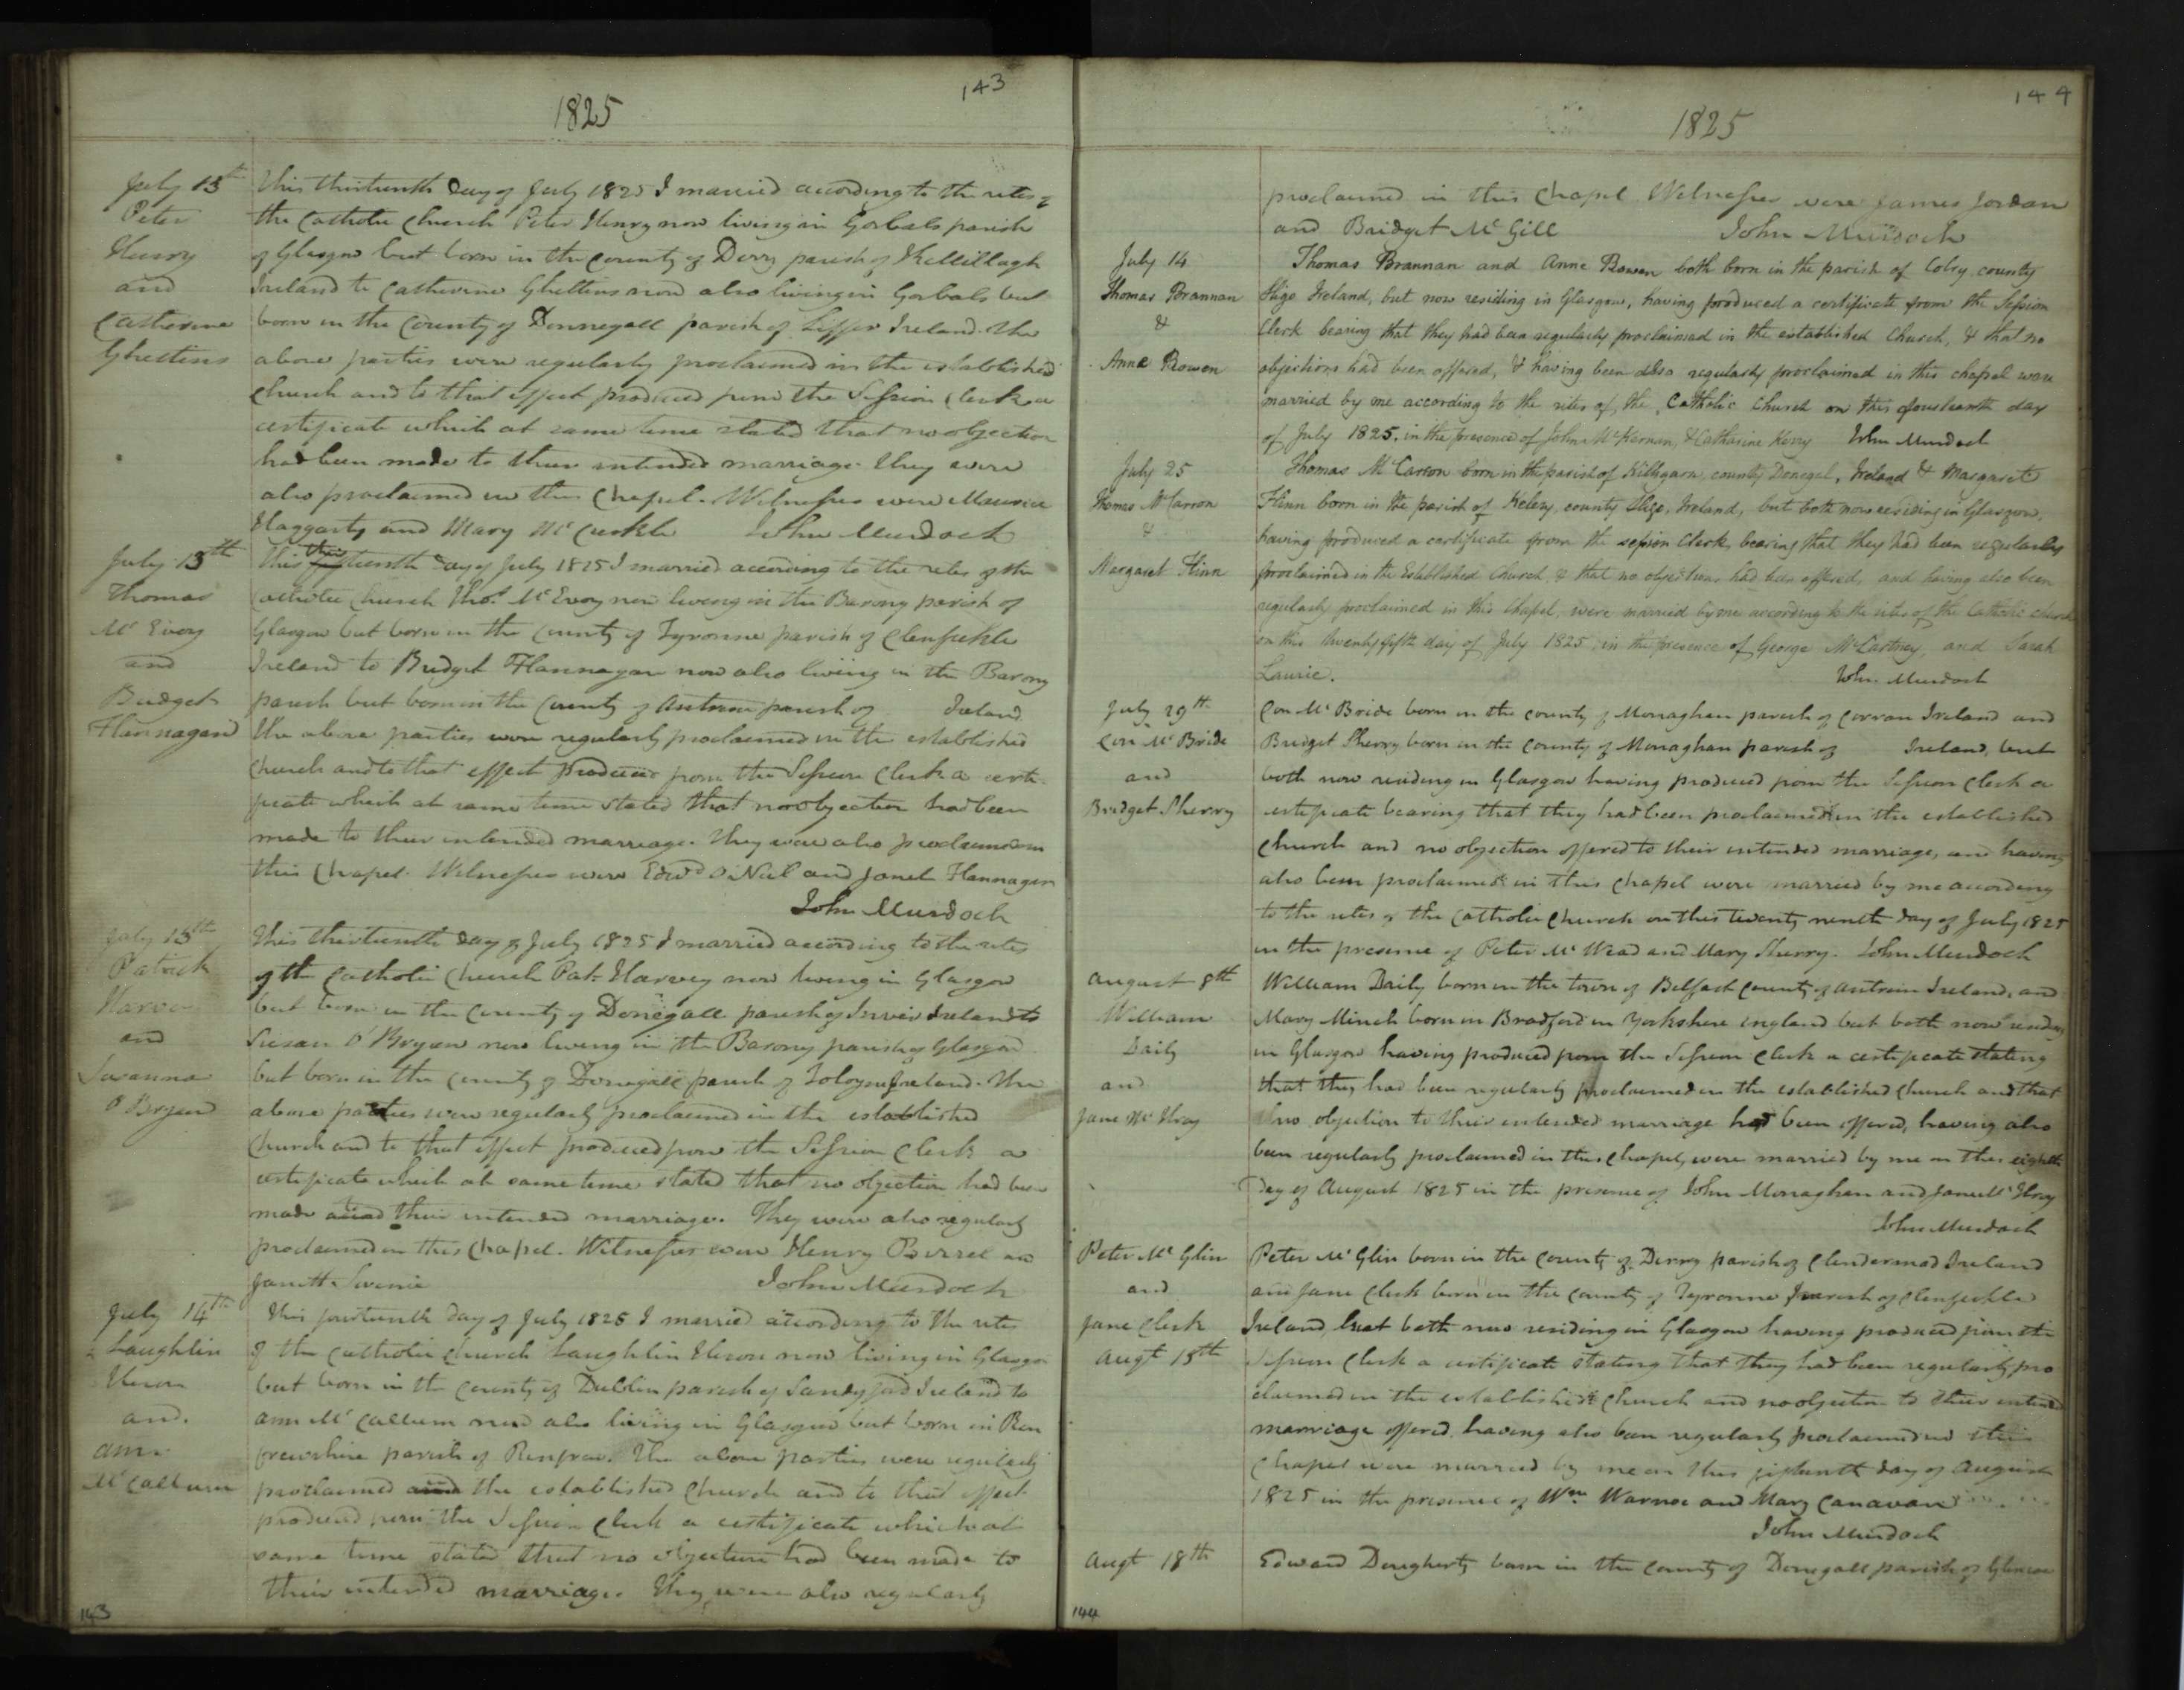 143
1825
July 13th
Peter
Henry
and
Catherine
Ghettins
This thirteenth Day of July 1825 I married according to the rites of
the Catholic Church Peter Henry now living in Gorbals parish
of Glasgow but born in the County of Derry parish of Killillagh
Ireland to Catherine Ghettins now also living in Gorbals but
born in the County of Donnegall parish of Liffer Ireland. The
above parties were regularly proclaimed in the established
Church and to that effect produced from the Session Clerk a
certificate which at same time stated that no objection
had been made to their intended marriage. They were
also proclaimed in this Chapel. Witnesses were Maurice
Haggarty and Mary Mc Curkle John Murdoch
July 13th
Thomas
Mc Evoy
and
Bridget
Flannagan
This thirteenth Day of July 1825 I married according to the rites of the
Catholic Church Thos. Mc Evoy now living in the Barony parish of
Glasgow but born in the County of Tyronne parish of Clenfickle
Ireland to Bridget Flannagan now also living in the Barony
parish but born in the County of Antrim parish of Ireland
The above parties were regularly proclaimed in the established
Church and to that effect produced from the Session Clerk a certi-
ficate which at same time stated that no objection had been
made to their intended marriage. They were also proclaimed in
this Chapel. Witnesses were Edwd O'Neil and Janet Flannagan
John Murdoch
July 13th
Patrick
Harvey
and
Susanna
O'Bryan
This thirteenth Day of July 1825 I married according to the rites
of the Catholic Church Pat. Harvey now living in Glasgow
but born in the County of Donegall parish of Inver Ireland to
Susan O'Bryan now living in the Barony parish of Glasgow
but born in the County of Donegall parish of Ireland. The
above parties were regularly proclaimed in the established
Church and to that effect produced from the Session Clerk a
certificate which at same time stated that no objection had been
made their intended marriage. They were also regularly
proclaimed in this Chapel. Witnesses were Henry Birrel and
Janett Swenie John Murdoch
July 14th
Laughlin
Heron
and
Ann
Mc Callum
This fourteenth Day of July 1825 I married according to the rites
of the Catholic Church Laughlin Heron now living in Glasgow
but born in the County of Dublin parish of Sandyford Ireland to
Ann Mc Callum now also living in Glasgow but born in Ren
frewshire parish of Renfrew. The above parties were regularly
proclaimed the established Church and to that effect
produced from the Session Clerk a certificate which at
same time stated that no objection had been made to
their intended marriage. They were also regularly
143
144
1825
proclaimed in this Chapel Witnesses were James Jordan
and Bridget Mc Gill John Murdoch
July 14
Thomas Brannan
&
Anne Bowen
Thomas Brannan and Anne Bowen both born in the parish of Colry county
Sligo Ireland, but now residing in Glasgow, having produced a certificate from the Session
Clerk bearing that they had been regularly proclaimed in the established Church, & that no
objections had been offered, & having been also regularly proclaimed in this chapel were
married by me according to the rites of the Catholic Church on this fourteenth day
of July 1825, in the presence of John McKernan, & Catharine Kerry John Murdoch
July 25
Thomas McCarron
&
Margaret Flinn
Thomas McCarron born in the parish of Killygarn, county Donegal, Ireland & Margaret
Flinn born in the parish of Kelery, county Sligo, Ireland, but both now residing in Glasgow,
having produced a certificate from the session Clerk, bearing that they had been regularly
proclaimed in the Established Church, & that no objections had been offered, and having also been
regularly proclaimed in this Chapel, were married by me according to the rites of the Catholic Church
on this twenty fifth day of July 1825, in the presence of George McCartney, and Sarah
Laurie. John Murdoch
July 29th
Con Mc Bride
and
Bridget Sherry
Con Mc Bride born in the county of Monaghan parish of Corran Ireland and
Bridget Sherry born in the County of Monaghan parish of Ireland, but
both now residing in Glasgow having produced from the Session Clerk a
certificate bearing that they had been proclaimed in the established
Church and no objection offered to their intended marriage, and having
also been proclaimed in this Chapel were married by me according
to the rites of the Catholic Church on this twenty ninth day of July 1825
in the presence of Peter Mc Wead and Mary Sherry. John Murdoch
August 8th
William
Daily
and
Jane Mc Ilroy
William Daily born in the town of Belfast County of Antrim Ireland, and
Mary Minch born in Bradford in Yorkshire England but both now residing
in Glasgow having produced from the Session Clerk a certificate stating
that they had been regularly proclaimed in the established Church and that
no objection to their intended marriage had been offered, having also
been regularly proclaimed in this Chapel, were married by me on this eighth
day of August 1825 in the presence of John Monaghan and Jane Mc Ilroy
John Murdoch
Peter Mc Glin
and
Jane Clerk
Augt 15th
Peter Mc Glin born in the County of Derry parish of Clendermad Ireland
and Jane Clerk born in the County of Tyronne parish of Clenfickle
Ireland, but both now residing in Glasgow having produced from the
Session Clerk a certificate stating that they had been regularly pro
claimed in the established Church and no objection to their intended
marriage offered, having also been regularly proclaimed in this
Chapel were married by me on this fifteenth day of August
1825 in the presence of Wm Warnoc and Mary Canavan
John Murdoch
Augt 18th
Edward Dougherty born in the County of Donegall parish of
144